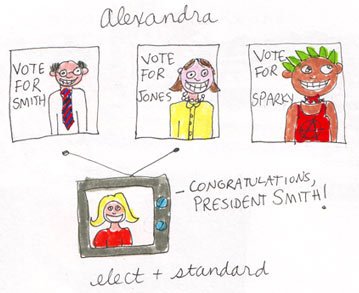 Alexandra
VOTE
FOR
SMITH
VOTE
FOR
JONES
VOTE
FOR
SPARKY
CONGRATULATIONS,
PRESIDENT SMITH!
elect + standard